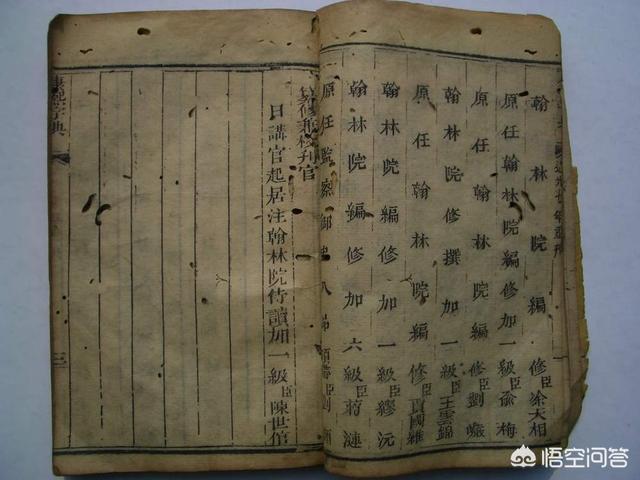 翰林院編修臣徐天相
原任翰林院編修加一級臣俞梅
原任翰林院編修臣劉巖
翰林院修撰加一級臣王雲錦
原任翰林院編修臣賈國維
翰林院編修加一級臣繆沅
翰林院編修加六級臣蔣漣
原任監察御史
纂修兼校刊官
日講官起居注翰林院侍讀加一級臣陳世倌
康熙字典
三
悟空问答